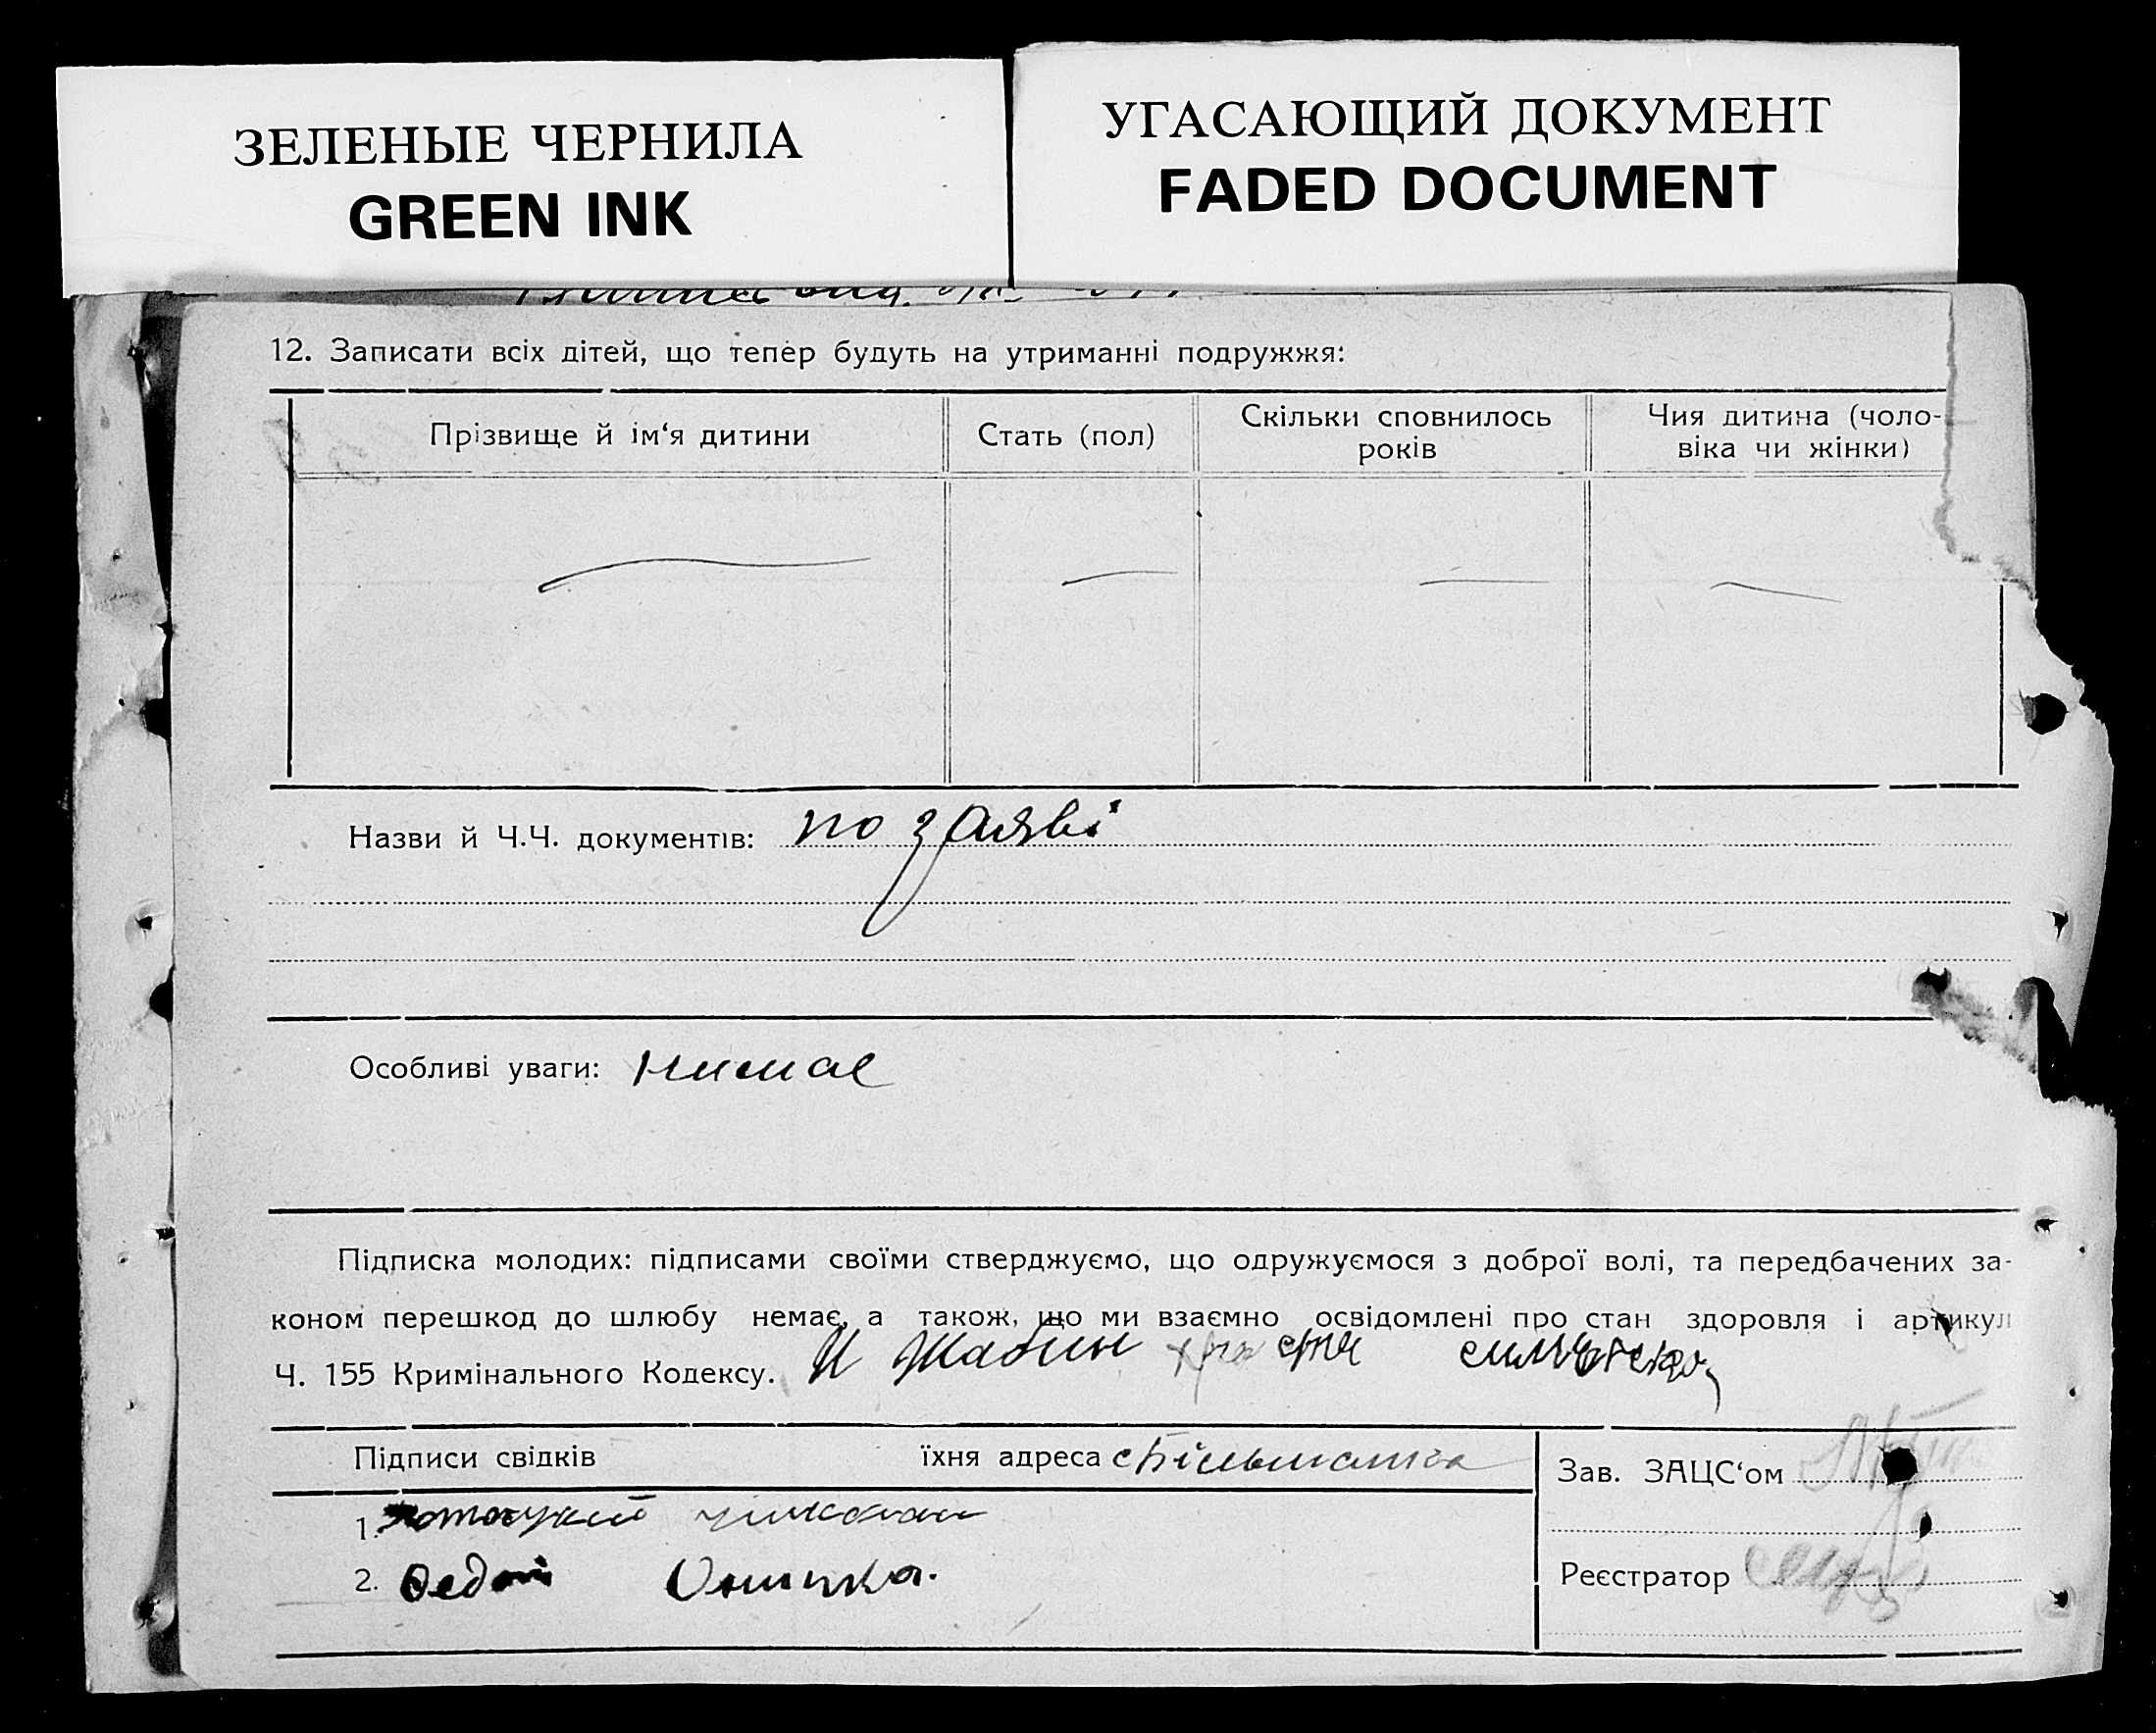 ЗЕЛЕНЫЕ ЧЕРНИЛА
GREEN INK
УГАСАЮЩИЙ ДОКУМЕНТ
FADED DOCUMENT
12. Записати всіх дітей, що тепер будуть на утриманні подружжя:
Прізвище й ім‘я дитини
Стать (пол)
Скільки сповнилось
років
Чия дитина (чоло-
віка чи жінки)
Назви й Ч.Ч. документів: по заяві
Особливі уваги: нимае
Підписка молодих: підписами своїми стверджуємо, що одружуємося з доброї волі, та передбачених за-
коном перешкод до шлюбу немає, а також, що ми взаємно освідомлені про стан здоровля і артикул
Ч. 155 Кримінального Кодексу.
Підписи свідків їхня адреса
1.
2.
Зав. ЗАЦС‘ом
Реєстратор